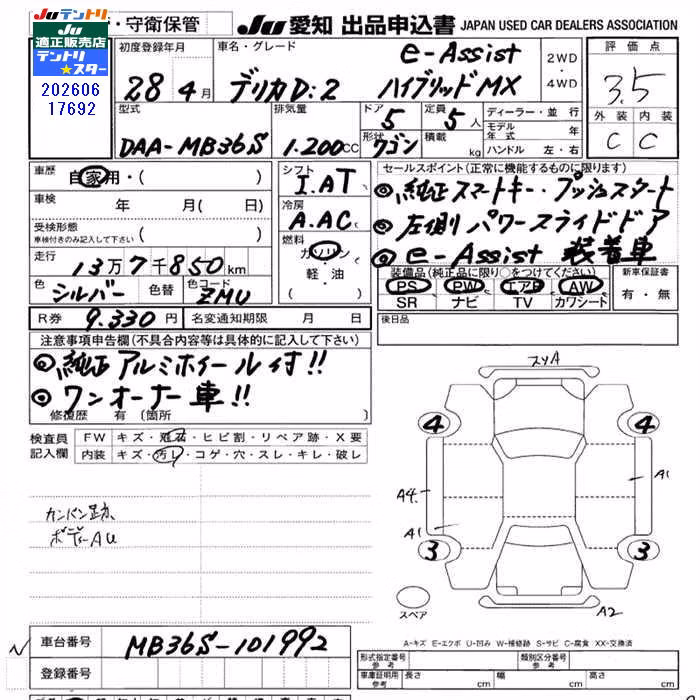 JUテントリ
JU
適正販売店
テントリ
★スター
202606
17692
・守衛保管
JU 愛知 出品申込書 JAPAN USED CAR DEALERS ASSOCIATION
初度登録年月
28 4月
車名・グレード
e-Assist
デリカD:2 ハイブリッドMX
2WD
・
4WD
評価点
3.5
外装 内装
C C
型式
DAA-MB36S
排気量
1.200cc
ドア
5
形状
ワゴン
定員
5人
積載
kg
ディーラー・並行
モデル年式 年
ハンドル 左・右
車歴
自家用・( )
車検 年 月( 日)
受検形態
車検付きのみ記入して下さい ( )
走行
13万7千850km
色 シルバー 色替 色コード ZMU
シフト
I.AT
冷房
A.AC
燃料
ガソリン
・
軽・油
セールスポイント(正常に機能するものに限ります)
◎純正スマートキー・プッシュスタート
◎左側パワースライドドア
◎e-Assist 装着車
装備品(純正品に限り○をつけてください)
PS PW エアB AW
SR ナビ TV カワシート
新車保証書
有・無
R券 9.330円 名変通知期限 月 日
後日品
注意事項申告欄(不具合内容等は具体的に記入して下さい)
◎純正アルミホイール付!!
◎ワンオーナー車!!
修復歴 有〔箇所 〕
検査員
記入欄
FW キズ・飛石・ヒビ割・リペア跡・X要
内装 キズ・汚レ・コゲ・穴・スレ・キレ・破レ
カンバン跡
ボデーAU
スリA
4 4
A4 A1
A1
3 3
スペア
A2
A-キズ E-エクボ U-凹み W-補修跡 S-サビ C-腐食 XX-交換済
車台番号 MB36S-101992
登録番号
形式指定番号
参考
類別区分番号
参考
車庫証明用
参考
長さ cm 幅 cm 高さ cm